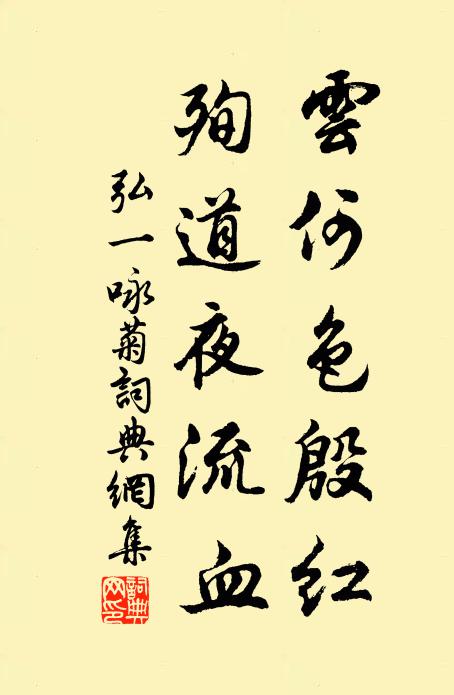 雲何色殷紅
殉道夜流血
弘一咏菊詞典網集
詞典網印